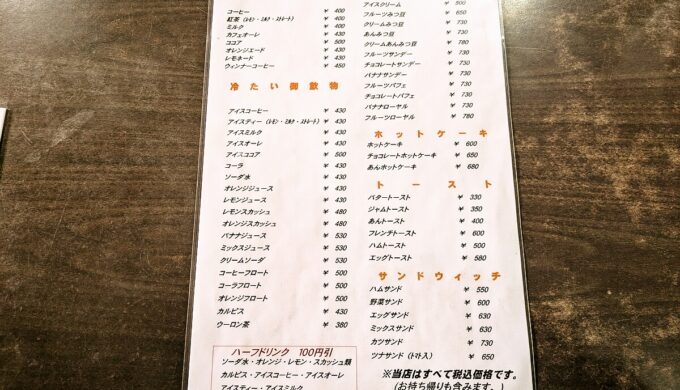 コーヒー ¥ 400
紅茶 (レモン・ミルク・ストレート) ¥ 400
ミルク ¥ 400
カフェオーレ ¥ 430
ココア ¥ 500
オレンジエード ¥ 430
レモネード ¥ 430
ウィンナーコーヒー ¥ 450
冷たい御飲物
アイスコーヒー ¥ 430
アイスティー (レモン・ミルク・ストレート) ¥ 430
アイスミルク ¥ 430
アイスオーレ ¥ 430
アイスココア ¥ 500
コーラ ¥ 430
ソーダ水 ¥ 430
オレンジジュース ¥ 430
レモンジュース ¥ 430
レモンスカッシュ ¥ 480
オレンジスカッシュ ¥ 480
バナナジュース ¥ 530
ミックスジュース ¥ 530
クリームソーダ ¥ 530
コーヒーフロート ¥ 500
コーラフロート ¥ 500
オレンジフロート ¥ 500
カルピス ¥ 430
ウーロン茶 ¥ 380
ハーフドリンク 100円引
ソーダ水・オレンジ・レモン・スカッシュ類
カルピス・アイスコーヒー・アイスオーレ
アイスティー・アイスミルク
アイスクリーム ¥ 500
フルーツみつ豆 ¥ 650
クリームみつ豆 ¥ 730
あんみつ豆 ¥ 730
クリームあんみつ豆 ¥ 780
フルーツサンデー ¥ 730
チョコレートサンデー ¥ 730
バナナサンデー ¥ 730
フルーツパフェ ¥ 730
チョコレートパフェ ¥ 730
バナナローヤル ¥ 730
フルーツローヤル ¥ 780
ホットケーキ
ホットケーキ ¥ 600
チョコレートホットケーキ ¥ 650
あんホットケーキ ¥ 680
トースト
バタートースト ¥ 330
ジャムトースト ¥ 350
あんトースト ¥ 400
フレンチトースト ¥ 600
ハムトースト ¥ 500
エッグトースト ¥ 580
サンドウィッチ
ハムサンド ¥ 550
野菜サンド ¥ 600
エッグサンド ¥ 630
ミックスサンド ¥ 630
カツサンド ¥ 730
ツナサンド (トマト入) ¥ 650
※当店はすべて税込価格です。
(お持ち帰りも含みます。)